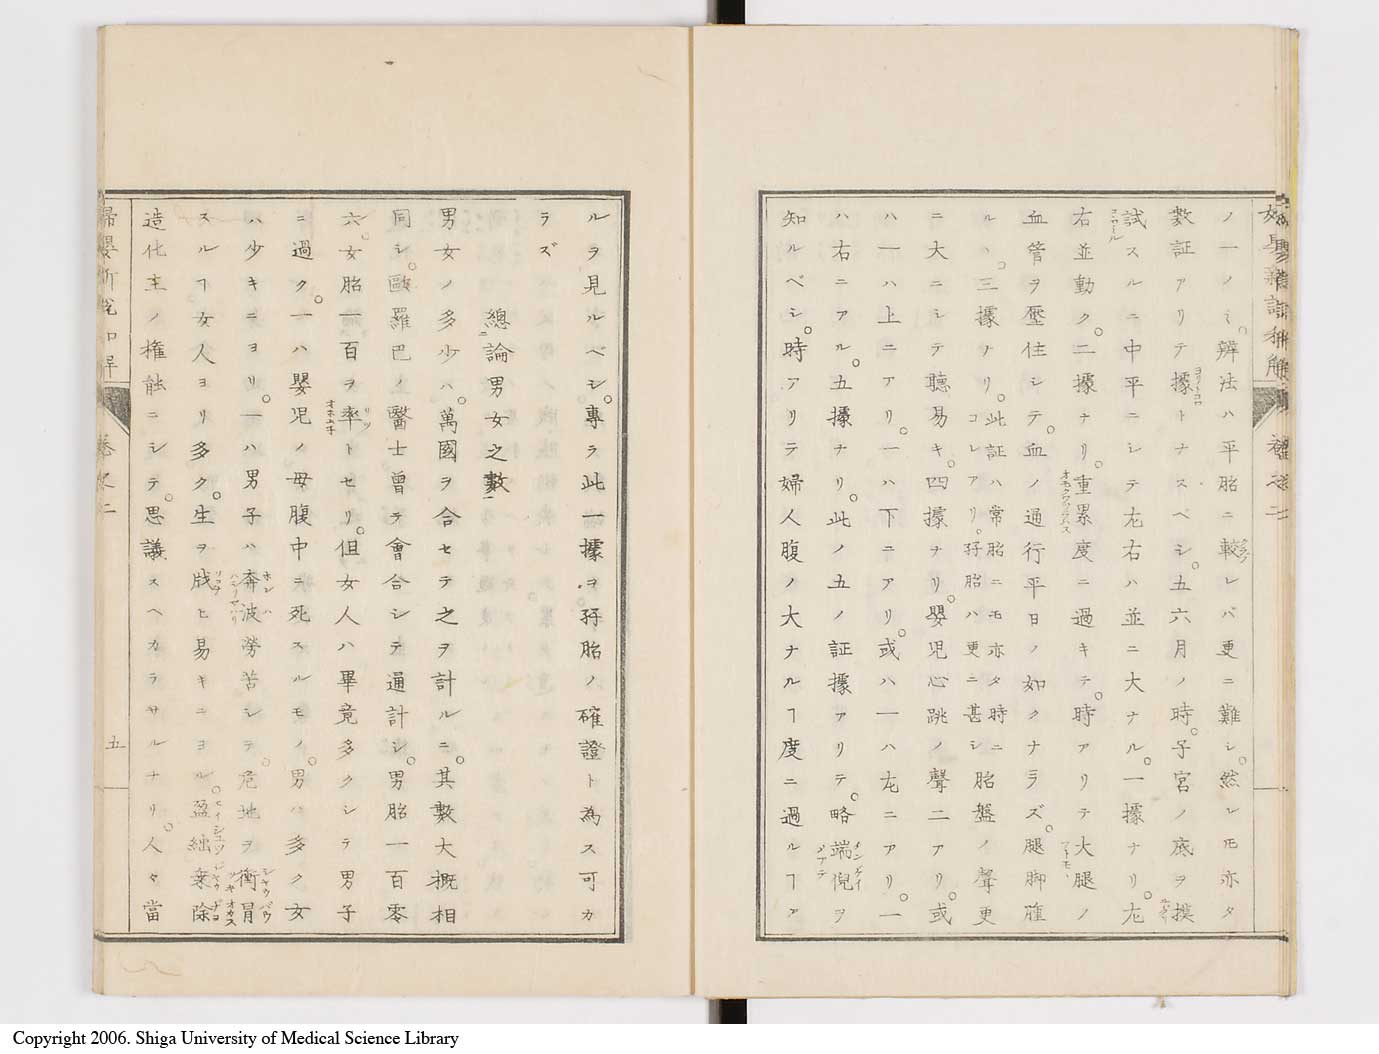 ノ一ノミ。辨法ハ平胎ニ較レバ更ニ難シ。然レ𪜈亦タ
數証アリテ據トナスベシ。五六月ノ時。子宮ノ底ヲ摸
試スルニ中平ニシテ左右ハ並ニ大ナル。一據ナリ。左
右並動ク。二據ナリ。重累度ニ過キテ。時アリテ大腿ノ
血管ヲ壓住シテ。血ノ通行平日ノ如クナラズ。腿脚腫
ルハ。三據ナリ。此証ハ常胎ニモ亦タ時ニ
コレアリ。孖胎ハ更ニ甚シ
胎盤ノ聲更
ニ大ニシテ聽易キ。四據ナリ。嬰児心跳ノ聲二アリ。或
ハ一ハ上ニアリ。一ハ下ニアリ。或ハ一ハ左ニアリ。一
ハ右ニアル。五據ナリ。此ノ五ノ証據アリテ。略端倪ヲ
知ルベシ。時アリテ婦人腹ノ大ナルヿ度ニ過ルヿア
ルヲ見ルベシ。專ラ此一據ヲ孖胎ノ確證ト為ス可カ
ラズ
總論男女之數
男女ノ多少ハ。萬國ヲ合セテ之ヲ計ルニ。其數大概相
同シ。歐羅巴ノ醫士曾テ會合シテ通計シ。男胎一百零
六。女胎一百ヲ率トセリ。但女人ハ畢竟多クシテ男子
ニ過ク。一ハ嬰児ノ母腹中ニ死スルモノ。男ハ多ク女
ハ少キニヨリ。一ハ男子ハ奔波勞苦シテ。危地ヲ衝冒
スルヿ女人ヨリ多ク。生ヲ戕ヒ易キニヨル。盈絀乗除
造化主ノ権能ニシテ。思議スヘカラサルナリ。人々當
巻之二
五
Copyright 2006. Shiga University of Medical Science Library